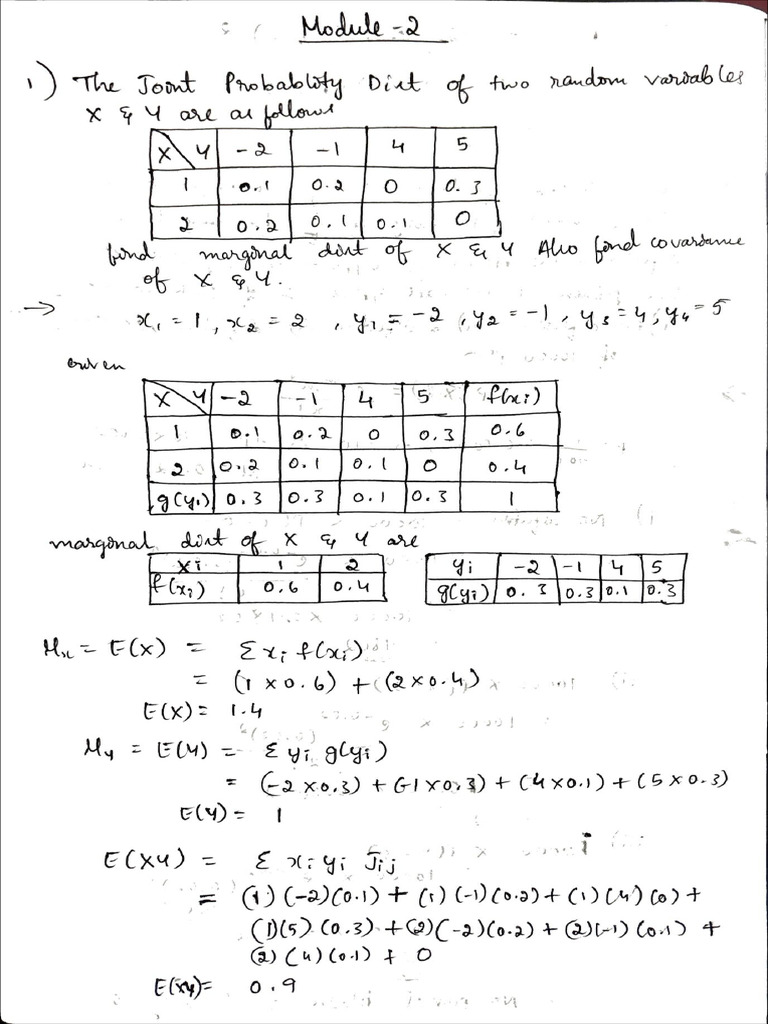 Module - 2
1) The Joint Probablity Dist of two random variables
X & Y are as follows
X Y -2 -1 4 5
1 0.1 0.2 0 0.3
2 0.2 0.1 0.1 0
find marginal dist of X & Y Also find covariance
of X & Y.
→ x₁ = 1, x₂ = 2 , y₁ = -2, y₂ = -1, y₃ = 4, y₄ = 5
Given
X Y -2 -1 4 5 f(xi)
1 0.1 0.2 0 0.3 0.6
2 0.2 0.1 0.1 0 0.4
g(yi) 0.3 0.3 0.1 0.3 1
marginal dist of X & Y are
xi 1 2 yi -2 -1 4 5
f(xi) 0.6 0.4 g(yi) 0.3 0.3 0.1 0.3
Mx = E(X) = Σ xi f(xi)
= (1 × 0.6) + (2 × 0.4)
E(X) = 1.4
My = E(Y) = Σ yi g(yi)
= (-2 × 0.3) + (-1 × 0.3) + (4 × 0.1) + (5 × 0.3)
E(Y) = 1
E(XY) = Σ xi yi Jij
= (1) (-2) (0.1) + (1) (-1) (0.2) + (1) (4) (0) +
(1) (5) (0.3) + (2) (-2) (0.2) + (2) (-1) (0.1) +
(2) (4) (0.1) + 0
E(XY) = 0.9